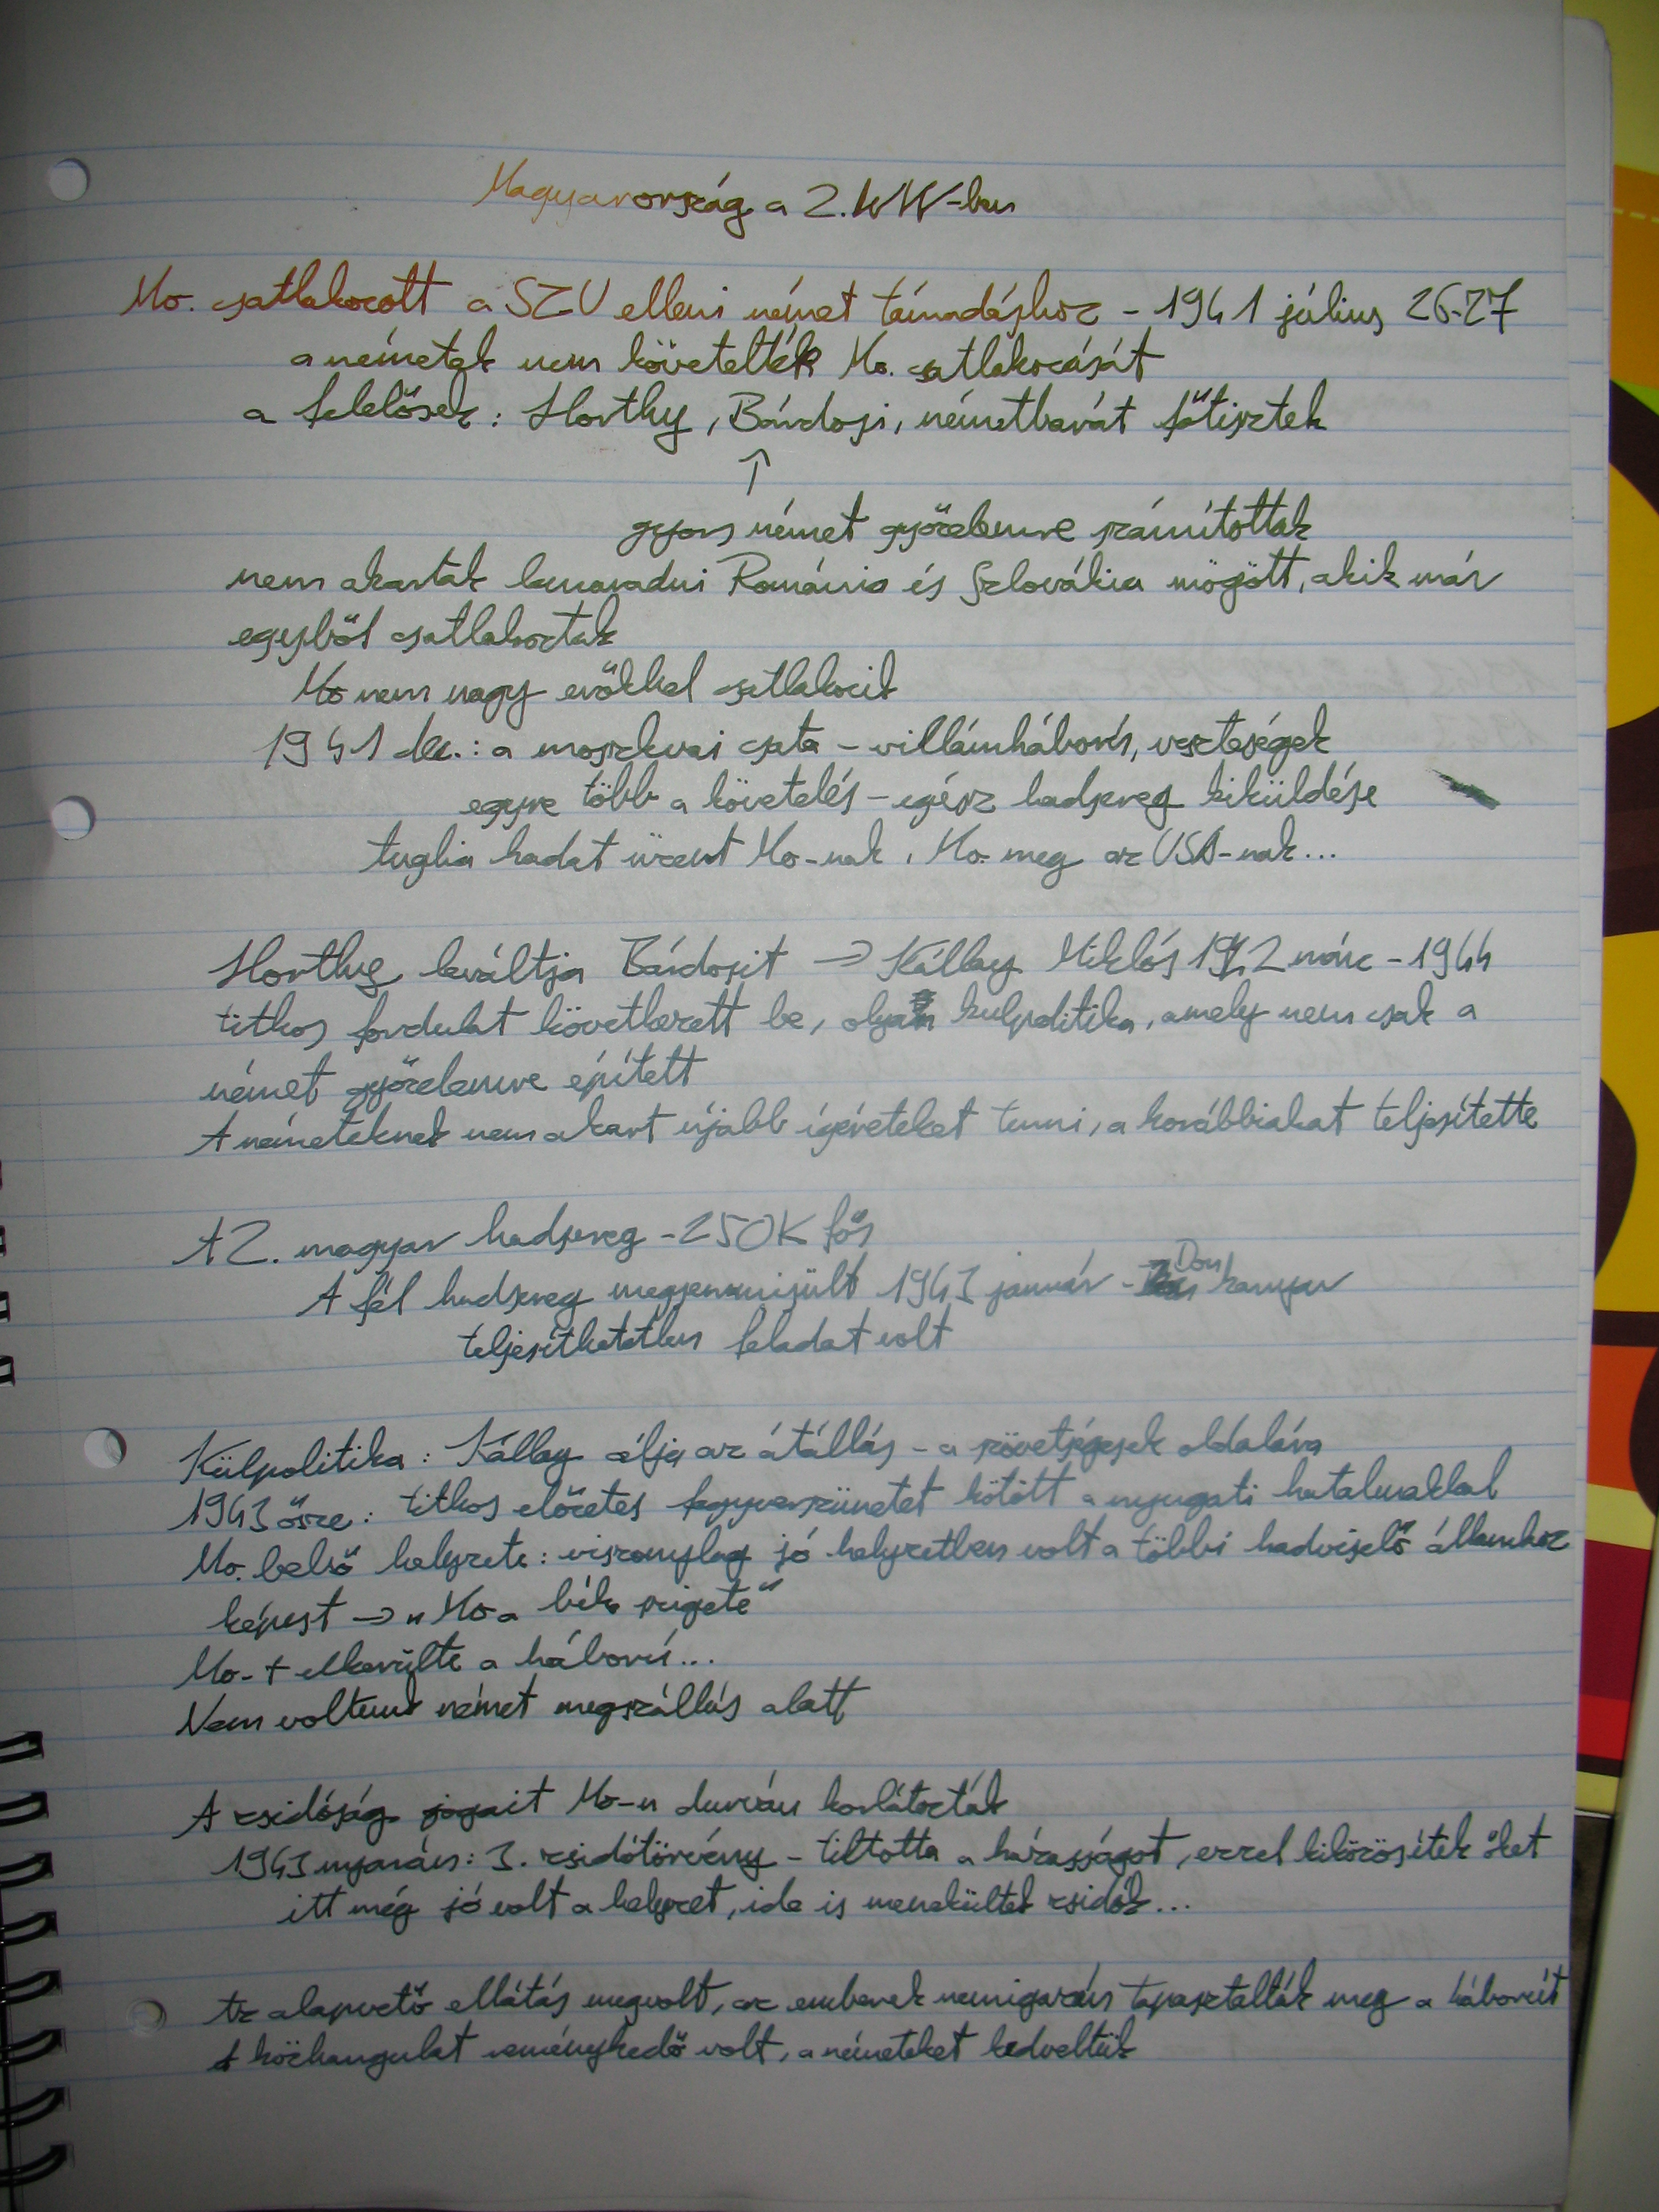 Magyarország a 2. WW-ban
Mo. csatlakozott a SZU elleni német támadáshoz - 1941 július 26-27
a németek nem követelték Mo. csatlakozását
a felelősek: Horthy, Bárdosi, németbarát főtisztek
↑
gyors német győzelemre számítottak
nem akartak lemaradni Románia és Szlovákia mögött, akik már
egyből csatlakoztak
Mo nem nagy erőkkel csatlakozik
1941 dec.: a moszkvai csata - villámháború, veszteségek
egyre több a követelés - egész hadsereg kiküldése
Anglia hadat üzent Mo-nak, Mo. meg az USA-nak...
Horthy leváltja Bárdosit → Kállay Miklós 1942 márc - 1944
titkos fordulat következett be, olyan külpolitika, amely nem csak a
német győzelemre épített
A németeknek nem akart újabb ígéreteket tenni, a korábbiakat teljesítette
A 2. magyar hadsereg - 250K fős
A fél hadsereg megsemmisült 1943 január - Don kanyar
teljesíthetetlen feladat volt
Külpolitika: Kállay célja az átállás - a szövetségesek oldalára
1943 ősze: titkos előzetes fegyverszünetet kötött a nyugati hatalmakkal
Mo. belső helyzete: viszonylag jó helyzetben volt a többi hadviselő államhoz
képest → "Mo a béke szigete"
Mo-t elkerülte a háború...
Nem voltunk német megszállás alatt
A zsidóság jogait Mo-n durván korlátozták
1943 nyarán: 3. zsidótörvény - tiltotta a házasságot, ezzel kiközösítték őket
itt még jó volt a helyzet, ide is menekültek zsidók...
Az alapvető ellátás megvolt, az emberek nemigazán tapasztalták meg a háborút
A közhangulat reménykedő volt, a németeket kedveltük